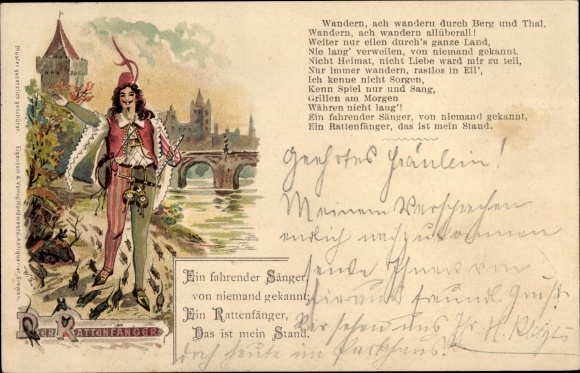 Wandern, ach wandern durch Berg und Thal,
Wandern, ach wandern allüberall!
Weiter nur eilen durch's ganze Land,
Nie lang' verweilen, von niemand gekannt.
Nicht Heimat, nicht Liebe ward mir zu teil,
Nur immer wandern, rastlos in Eil',
Ich kenne nicht Sorgen,
Kenn Spiel nur und Sang,
Grillen am Morgen
Währen nicht lang'!
Ein fahrender Sänger, von niemand gekannt,
Ein Rattenfänger, das ist mein Stand.
Geehrtes Fräulein!
Meinem Versprechen
endlich nachzukommen
sende Ihnen von
hieraus freundl. Gruß.
Wir sehen uns Ihr H.
doch heute im Parkhaus.
Ein fahrender Sänger,
von niemand gekannt,
Ein Rattenfänger,
Das ist mein Stand.
DER RATTENFÄNGER
Muster gesetzlich geschützt.